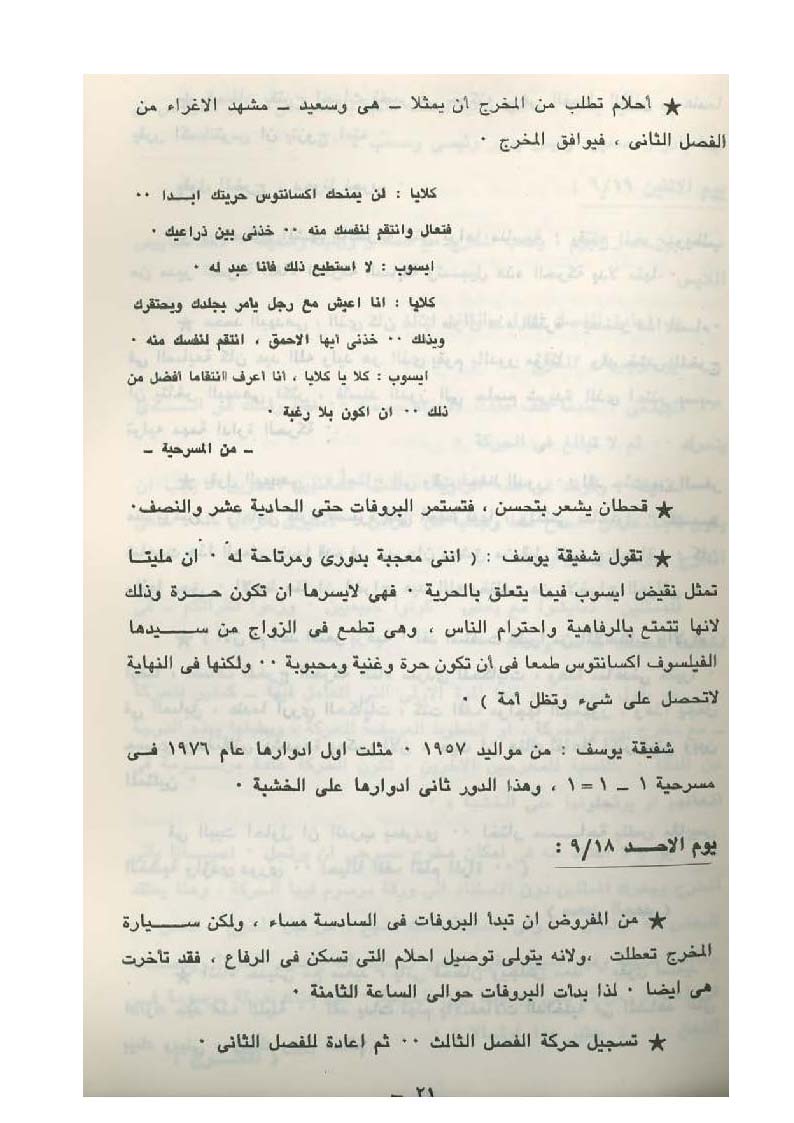 ★ أحلام تطلب من المخرج أن يمثلا ــ هى وسعيد ــ مشهد الاغراء من
الفصل الثانى ، فيوافق المخرج ٠
كلايا : لن يمنحك اكسانتوس حريتك ابدا ٠٠
فتعال وانتقم لنفسك منه ٠٠ خذنى بين ذراعيك ٠
ايسوب : لا استطيع ذلك فانا عبد له ٠
كلايا : انا اعيش مع رجل يامر بجلدك ويحتقرك
وبذلك ٠٠ خذنى أيها الاحمق ، انتقم لنفسك منه ٠
ايسوب : كلا يا كلايا ، أنا اعرف انتقاما افضل من
ذلك ٠٠ ان اكون بلا رغبة ٠
ــ من المسرحية ــ
★ قحطان يشعر بتحسن ، فتستمر البروفات حتى الحادية عشر والنصف٠
★ تقول شفيقة يوسف : ( اننى معجبة بدورى ومرتاحة له ٠ ان مليتا
تمثل نقيض ايسوب فيما يتعلق بالحرية ٠ فهى لايسرها ان تكون حـــرة وذلك
لانها تتمتع بالرفاهية واحترام الناس ، وهى تطمع فى الزواج من ســـيدها
الفيلسوف اكسانتوس طمعا فى أن تكون حرة وغنية ومحبوبة ٠٠ ولكنها فى النهاية
لاتحصل على شىء وتظل أمة ) ٠
شفيقة يوسف : من مواليد ١٩٥٧ ٠ مثلت اول ادوارها عام ١٩٧٦ فــى
مسرحية ١ ــ ١ = ١ ، وهذا الدور ثانى ادوارها على الخشبة ٠
يوم الاحــد ٩/١٨ :
★ من المفروض ان تبدأ البروفات فى السادسة مساء ، ولكن ســـيارة
المخرج تعطلت ،ولانه يتولى توصيل احلام التى تسكن فى الرفاع ، فقد تأخرت
هى ايضا ٠ لذا بدأت البروفات حوالى الساعة الثامنة ٠
★ تسجيل حركة الفصل الثالث ٠٠ ثم اعادة للفصل الثانى ٠
ــ ٢١